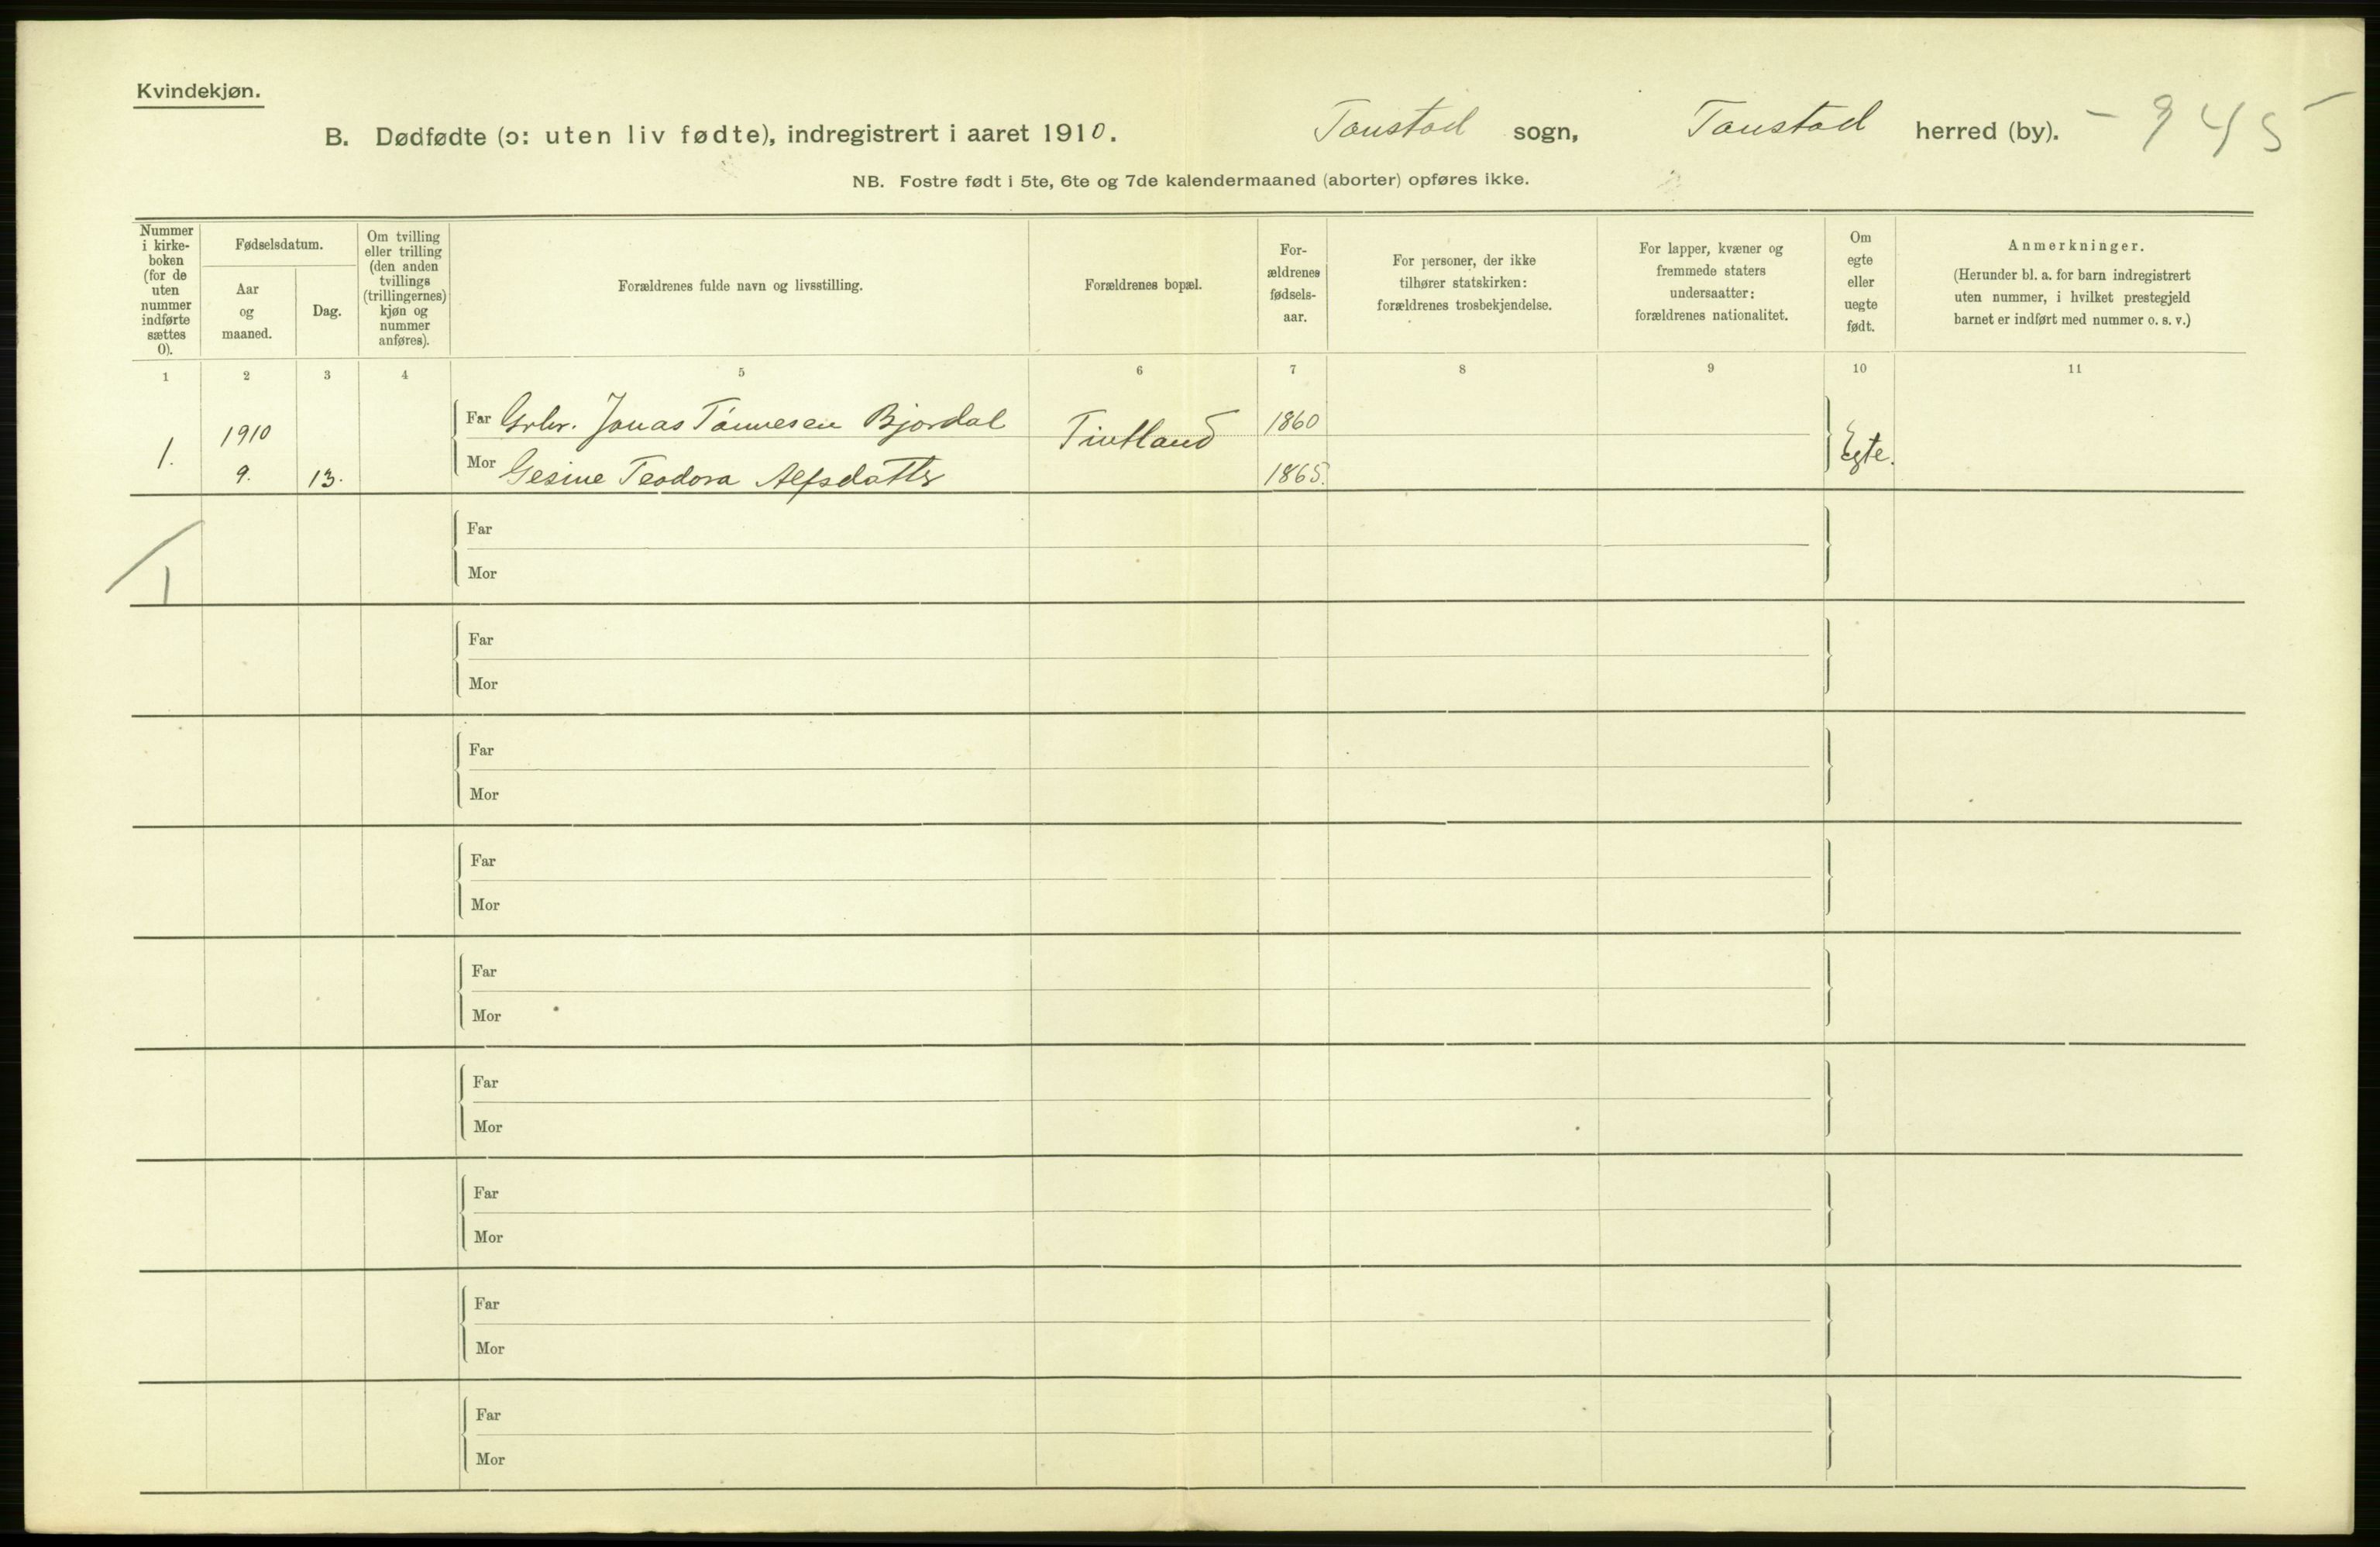 Kvindekjøn.
B. Dødfødte (ɔ: uten liv fødte), indregistrert i aaret 1910. Tonstad sogn, Tonstad herred (by). - 945 -
NB. Fostre født i 5te, 6te og 7de kalendermaaned (aborter) opføres ikke.
Nummer
i kirke-
boken
(for de
uten
nummer
indførte
sættes
0).
Fødselsdatum.
Aar
og
maaned.
Dag.
Om tvilling
eller trilling
(den anden
tvillings
(trillingernes)
kjøn og
nummer
anføres).
Forældrenes fulde navn og livsstilling.
Forældrenes bopæl.
For-
ældrenes
fødsels-
aar.
For personer, der ikke
tilhører statskirken:
forældrenes trosbekjendelse.
For lapper, kvæner og
fremmede staters
undersaatter:
forældrenes nationalitet.
Om
egte
eller
uegte
født.
Anmerkninger.
(Herunder bl. a. for barn indregistrert
uten nummer, i hvilket prestegjeld
barnet er indført med nummer o. s. v.)
1 2 3 4 5 6 7 8 9 10 11
1. 1910
9. 13.
Far Grbr. Jonas Tønnesen Bjordal
Mor Gesine Teodora Alfsdatter
Tintland
1860
1865.
Egte.
1
Far
Mor
Far
Mor
Far
Mor
Far
Mor
Far
Mor
Far
Mor
Far
Mor
Far
Mor
Far
Mor